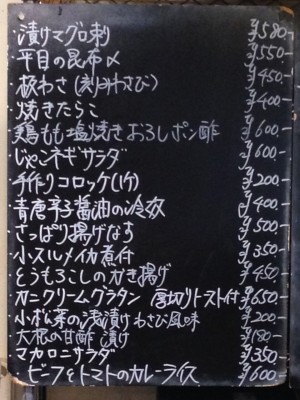 ・漬けマグロ刺 ¥580-
・平目の昆布〆 ¥550-
・板わさ(刻みわさび) ¥450-
・焼きたらこ ¥400-
・鶏もも塩焼きおろしポン酢 ¥600-
・じゃこネギサラダ ¥600-
・手作りコロッケ(1ケ) ¥200-
・青唐辛子醤油の冷奴 ¥400-
・さっぱり揚げなす ¥500-
・小スルメイカ煮付 ¥350-
・とうもろこしのかき揚げ ¥450-
・カニクリームグラタン 厚切りトースト付 ¥650-
・小松菜の浅漬けわさび風味 ¥200-
・大根の甘酢漬け ¥180-
・マカロニサラダ ¥350-
・ビーフ&トマトのカレーライス ¥600-